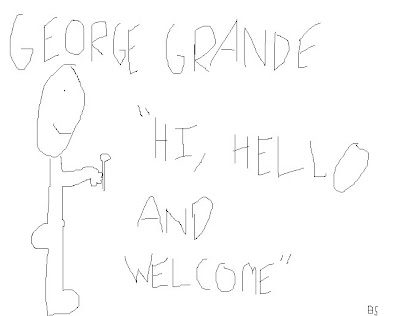 GEORGE GRANDE
"HI, HELLO
AND
WELCOME"
BS